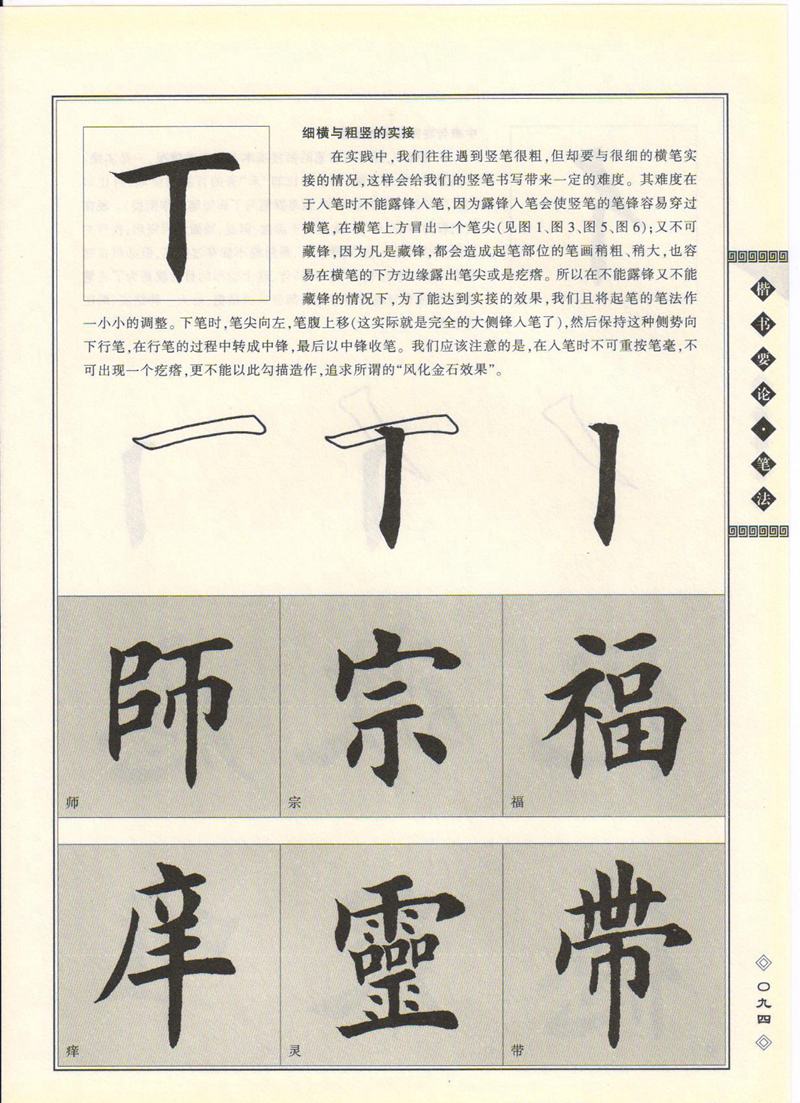 细横与粗竖的实接
在实践中,我们往往遇到竖笔很粗,但却要与很细的横笔实
接的情况,这样会给我们的竖笔书写带来一定的难度。其难度在
于入笔时不能露锋入笔,因为露锋入笔会使竖笔的笔锋容易穿过
横笔,在横笔上方冒出一个笔尖(见图1、图3、图5、图6);又不可
藏锋,因为凡是藏锋,都会造成起笔部位的笔画稍粗、稍大,也容
易在横笔的下方边缘露出笔尖或是疙瘩。所以在不能露锋又不能
藏锋的情况下,为了能达到实接的效果,我们且将起笔的笔法作
一小小的调整。下笔时,笔尖向左,笔腹上移(这实际就是完全的大侧锋入笔了),然后保持这种侧势向
下行笔,在行笔的过程中转成中锋,最后以中锋收笔。我们应该注意的是,在入笔时不可重按笔毫,不
可出现一个疙瘩,更不能以此勾描造作,追求所谓的“风化金石效果”。
師 宗 福
师 宗 福
庠 靈 帶
痒 灵 带
楷书要论·笔法
〇九四